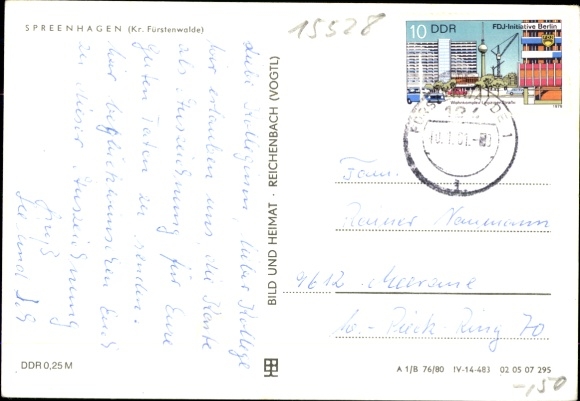 SPREENHAGEN (Kr. Fürstenwalde)
15528
10 DDR
FDJ-Initiative Berlin
Wohnkomplex Leipziger Straße
1979
Liebe Kollegin, lieber Kollege
Wir erlauben uns, die Karte
als Auszeichnung für Eure
guten Taten zu senden.
Wir beglückwünschen Euch
zu dieser Auszeichnung
Gruß
BILD UND HEIMAT · REICHENBACH (VOGTL)
Fam.
Reiner Naumann
9612 Meerane
W.-Pieck-Ring 70
DDR 0,25 M
A 1/B 76/80 IV-14-483 02 05 07 295
-,50